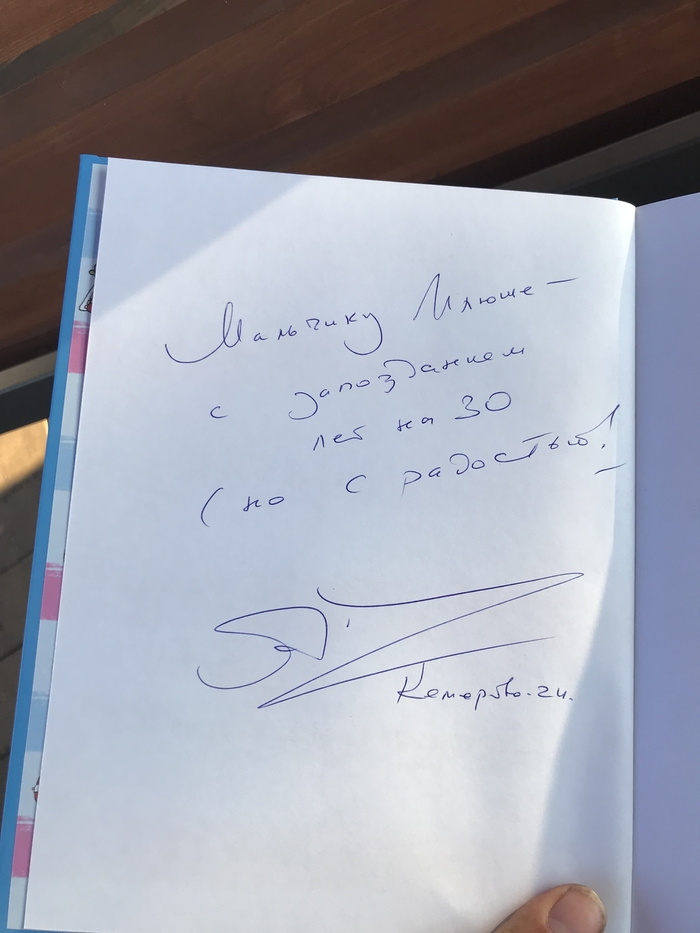 Мальчику Илюше —
с запозданием
лет на 30
(но с радостью!
Кемерово. 24.